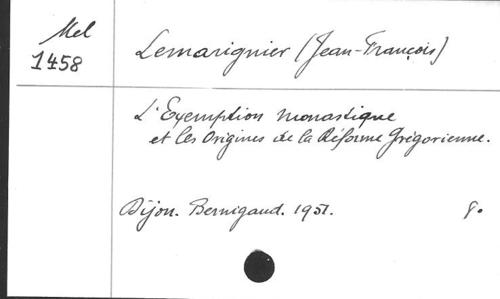 Mel
1458
Lemarignier (Jean-François)
L'Exemption monastique
et les Origines de la Réforme Grégorienne.
Dijon. Bernigaud. 1951. 8°